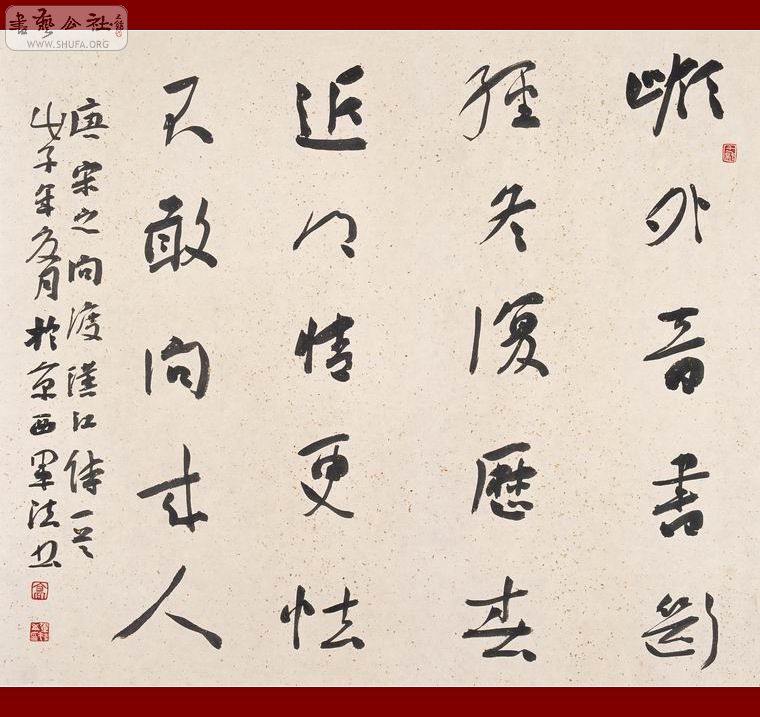 書藝公社
WWW.SHUFA.ORG
嶺外音書斷
經冬復歷春
近鄉情更怯
不敢問来人
唐宋之問渡漢江詩一首
戊子年夏月於京西軍法書